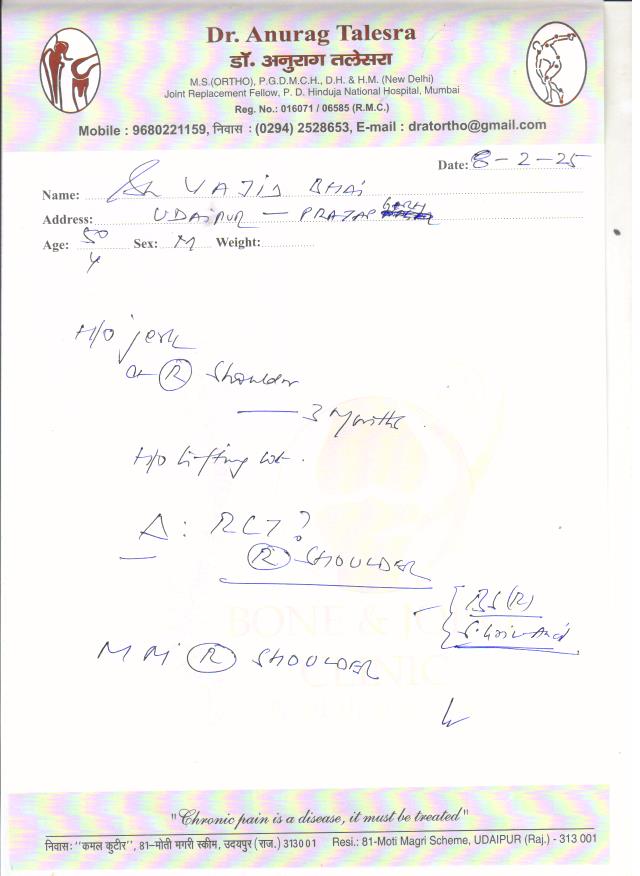 Dr. Anurag Talesra
डॉ. अनुराग तलेसरा
M.S.(ORTHO), P.G.D.M.C.H., D.H. & H.M. (New Delhi)
Joint Replacement Fellow, P. D. Hinduja National Hospital, Mumbai
Reg. No.: 016071 / 06585 (R.M.C.)
Mobile : 9680221159, निवास : (0294) 2528653, E-mail : dratortho@gmail.com
Date: 8-2-25
Name: VAJID BHAI
Address: UDAIPUR - PRATAPGARH
Age: 50 Sex: M Weight:
Y
H/O jerk
R Shoulder
3 Months
H/O lifting wt.
Δ: RCT?
R SHOULDER
BS(R)
S. Uric Acid
MRI R SHOULDER
BONE & JOINT
CLINIC
"Chronic pain is a disease, it must be treated"
निवास: "कमल कुटीर", 81-मोती मगरी स्कीम, उदयपुर (राज.) 313001 Resi.: 81-Moti Magri Scheme, UDAIPUR (Raj.) - 313 001